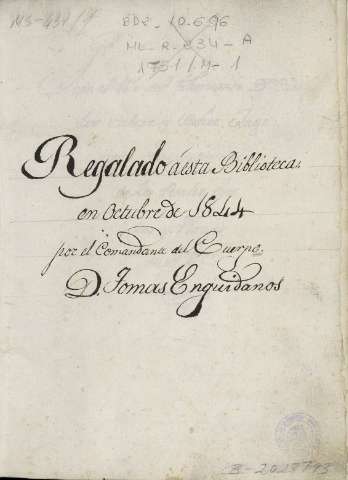 MS-431/1
BDE_10.696
ML-R-234-A
1751/M-1
Regalado á esta Biblioteca
en Octubre de 1844
por el Comandante del Cuerpo
D. Tomas Enguidanos